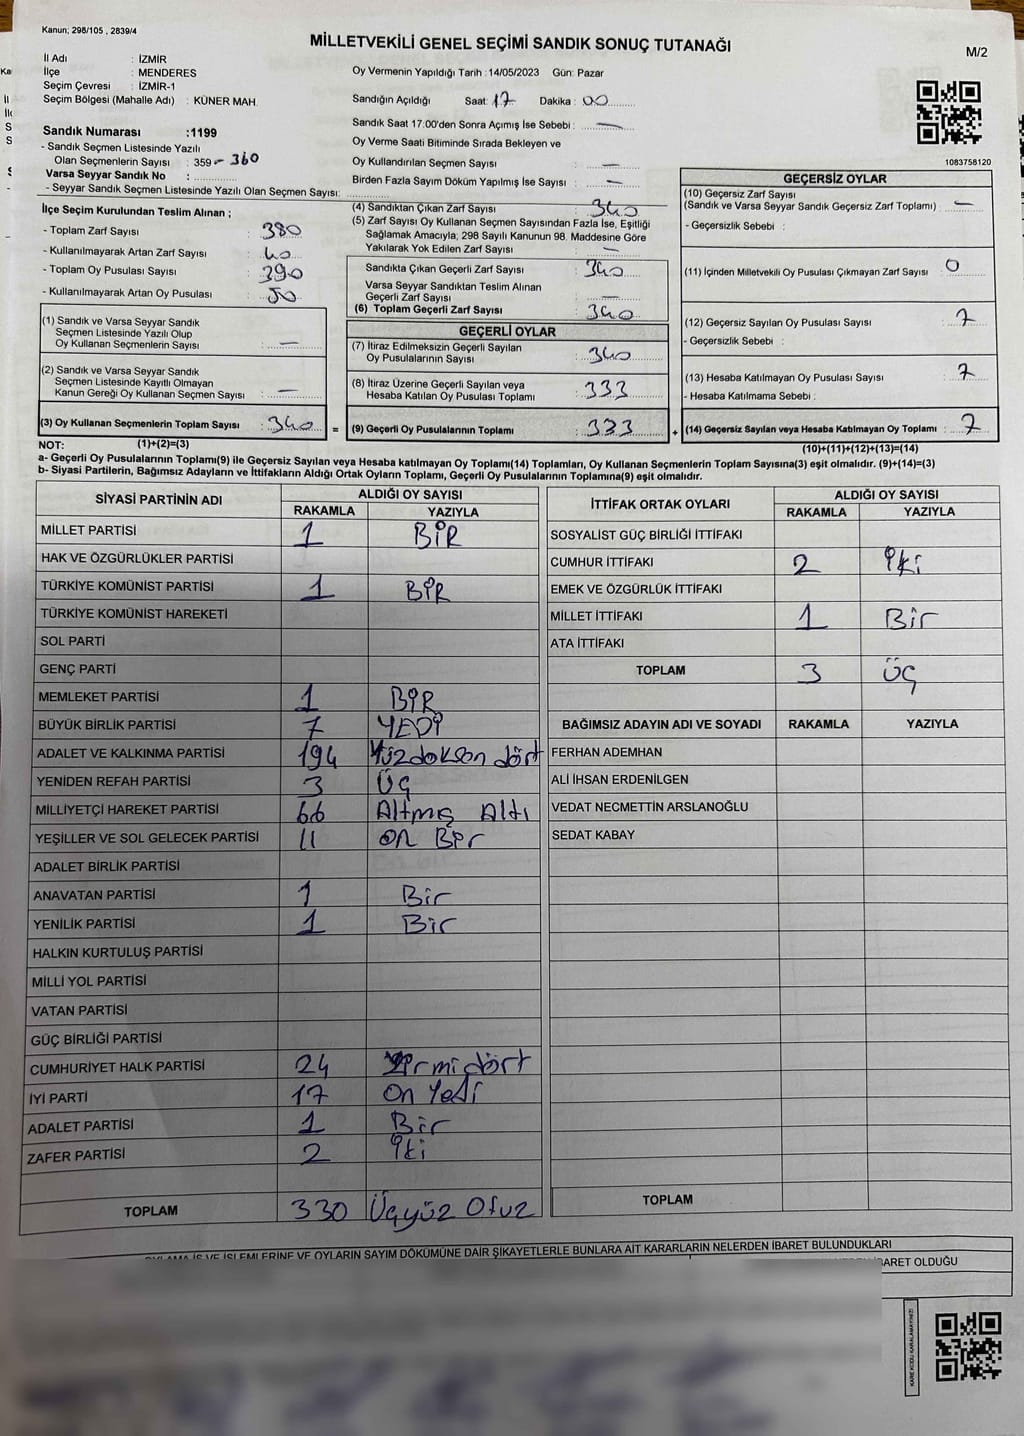 Kanun; 298/105 , 2839/4
MİLLETVEKİLİ GENEL SEÇİMİ SANDIK SONUÇ TUTANAĞI
M/2
İl Adı : İZMİR
İlçe : MENDERES
Seçim Çevresi : İZMİR-1
Seçim Bölgesi (Mahalle Adı) : KÜNER MAH.
Oy Vermenin Yapıldığı Tarih : 14/05/2023 Gün: Pazar
Sandığın Açıldığı Saat: 17 Dakika : 00
Sandık Saat 17:00'den Sonra Açılmış İse Sebebi : —
Oy Verme Saati Bitiminde Sırada Bekleyen ve
Oy Kullandırılan Seçmen Sayısı : —
Birden Fazla Sayım Döküm Yapılmış İse Sayısı : —
1083758120
Sandık Numarası :1199
- Sandık Seçmen Listesinde Yazılı
Olan Seçmenlerin Sayısı : 359 - 360
Varsa Seyyar Sandık No :
- Seyyar Sandık Seçmen Listesinde Yazılı Olan Seçmen Sayısı:
İlçe Seçim Kurulundan Teslim Alınan ;
- Toplam Zarf Sayısı : 380
- Kullanılmayarak Artan Zarf Sayısı : 40
- Toplam Oy Pusulası Sayısı : 390
- Kullanılmayarak Artan Oy Pusulası : 50
(1) Sandık ve Varsa Seyyar Sandık
Seçmen Listesinde Yazılı Olup
Oy Kullanan Seçmenlerin Sayısı : —
(2) Sandık ve Varsa Seyyar Sandık
Seçmen Listesinde Kayıtlı Olmayan
Kanun Gereği Oy Kullanan Seçmen Sayısı : —
(3) Oy Kullanan Seçmenlerin Toplam Sayısı : 340 =
(4) Sandıktan Çıkan Zarf Sayısı : 340
(5) Zarf Sayısı Oy Kullanan Seçmen Sayısından Fazla İse, Eşitliği
Sağlamak Amacıyla; 298 Sayılı Kanunun 98. Maddesine Göre
Yakılarak Yok Edilen Zarf Sayısı : —
Sandıkta Çıkan Geçerli Zarf Sayısı : 340
Varsa Seyyar Sandıktan Teslim Alınan
Geçerli Zarf Sayısı : —
(6) Toplam Geçerli Zarf Sayısı : 340
GEÇERLİ OYLAR
(7) İtiraz Edilmeksizin Geçerli Sayılan
Oy Pusulalarının Sayısı : 340
(8) İtiraz Üzerine Geçerli Sayılan veya
Hesaba Katılan Oy Pusulası Toplamı : 333
(9) Geçerli Oy Pusulalarının Toplamı : 333 +
GEÇERSİZ OYLAR
(10) Geçersiz Zarf Sayısı
(Sandık ve Varsa Seyyar Sandık Geçersiz Zarf Toplamı) : —
- Geçersizlik Sebebi :
(11) İçinden Milletvekili Oy Pusulası Çıkmayan Zarf Sayısı : 0
(12) Geçersiz Sayılan Oy Pusulası Sayısı : 7
- Geçersizlik Sebebi :
(13) Hesaba Katılmayan Oy Pusulası Sayısı : 7
- Hesaba Katılmama Sebebi :
(14) Geçersiz Sayılan veya Hesaba Katılmayan Oy Toplamı : 7
NOT: (1)+(2)=(3)
(10)+(11)+(12)+(13)=(14)
a- Geçerli Oy Pusulalarının Toplamı(9) ile Geçersiz Sayılan veya Hesaba katılmayan Oy Toplamı(14) Toplamları, Oy Kullanan Seçmenlerin Toplam Sayısına(3) eşit olmalıdır. (9)+(14)=(3)
b- Siyasi Partilerin, Bağımsız Adayların ve İttifakların Aldığı Ortak Oyların Toplamı, Geçerli Oy Pusulalarının Toplamına(9) eşit olmalıdır.
SİYASİ PARTİNİN ADI
ALDIĞI OY SAYISI
RAKAMLA YAZIYLA
MİLLET PARTİSİ 1 BİR
HAK VE ÖZGÜRLÜKLER PARTİSİ
TÜRKİYE KOMÜNİST PARTİSİ 1 BİR
TÜRKİYE KOMÜNİST HAREKETİ
SOL PARTİ
GENÇ PARTİ
MEMLEKET PARTİSİ 1 BİR
BÜYÜK BİRLİK PARTİSİ 7 YEDİ
ADALET VE KALKINMA PARTİSİ 194 Yüzdoksan dört
YENİDEN REFAH PARTİSİ 3 Üç
MİLLİYETÇİ HAREKET PARTİSİ 66 Altmış Altı
YEŞİLLER VE SOL GELECEK PARTİSİ 11 On Bir
ADALET BİRLİK PARTİSİ
ANAVATAN PARTİSİ 1 Bir
YENİLİK PARTİSİ 1 Bir
HALKIN KURTULUŞ PARTİSİ
MİLLİ YOL PARTİSİ
VATAN PARTİSİ
GÜÇ BİRLİĞİ PARTİSİ
CUMHURİYET HALK PARTİSİ 24 Yirmi dört
İYİ PARTİ 17 On Yedi
ADALET PARTİSİ 1 Bir
ZAFER PARTİSİ 2 İki
TOPLAM 330 Üçyüz Otuz
İTTİFAK ORTAK OYLARI
ALDIĞI OY SAYISI
RAKAMLA YAZIYLA
SOSYALİST GÜÇ BİRLİĞİ İTTİFAKI
CUMHUR İTTİFAKI 2 İki
EMEK VE ÖZGÜRLÜK İTTİFAKI
MİLLET İTTİFAKI 1 Bir
ATA İTTİFAKI
TOPLAM 3 Üç
BAĞIMSIZ ADAYIN ADI VE SOYADI RAKAMLA YAZIYLA
FERHAN ADEMHAN
ALİ İHSAN ERDENİLGEN
VEDAT NECMETTİN ARSLANOĞLU
SEDAT KABAY
TOPLAM
OYLAMA İŞ VE İŞLEMLERİNE VE OYLARIN SAYIM DÖKÜMÜNE DAİR ŞİKAYETLERLE BUNLARA AİT KARARLARIN NELERDEN İBARET BULUNDUKLARI
İBARET OLDUĞU
KARE KODU KARALAMAYINIZ